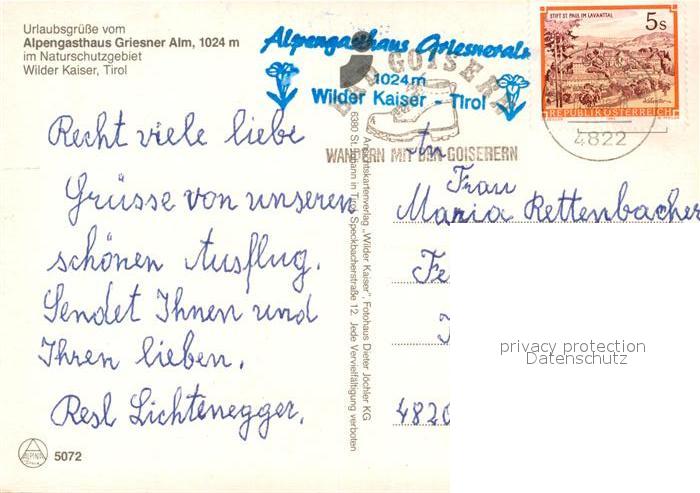 Urlaubsgrüße vom
Alpengasthaus Griesner Alm, 1024 m
im Naturschutzgebiet
Wilder Kaiser, Tirol
Alpengasthaus Griesneralm
1024m
Wilder Kaiser - Tirol
BAD GOISERN
WANDERN MIT DEN GOISERERN
STIFT ST. PAUL IM LAVANTTAL
5s
REPUBLIK ÖSTERREICH
4822
Recht viele liebe
Grüsse von unseren
schönen Ausflug.
Sendet Ihnen und
Ihren lieben.
Resl Lichtenegger.
Ansichtskartenverlag „Wilder Kaiser", Fotohaus Dieter Jöchler KG
6380 St. Johann in Tirol, Speckbacherstraße 12. Jede Vervielfältigung verboten
An
Frau
Maria Rettenbacher
Fe
4820
privacy protection
Datenschutz
ALPINA
5072